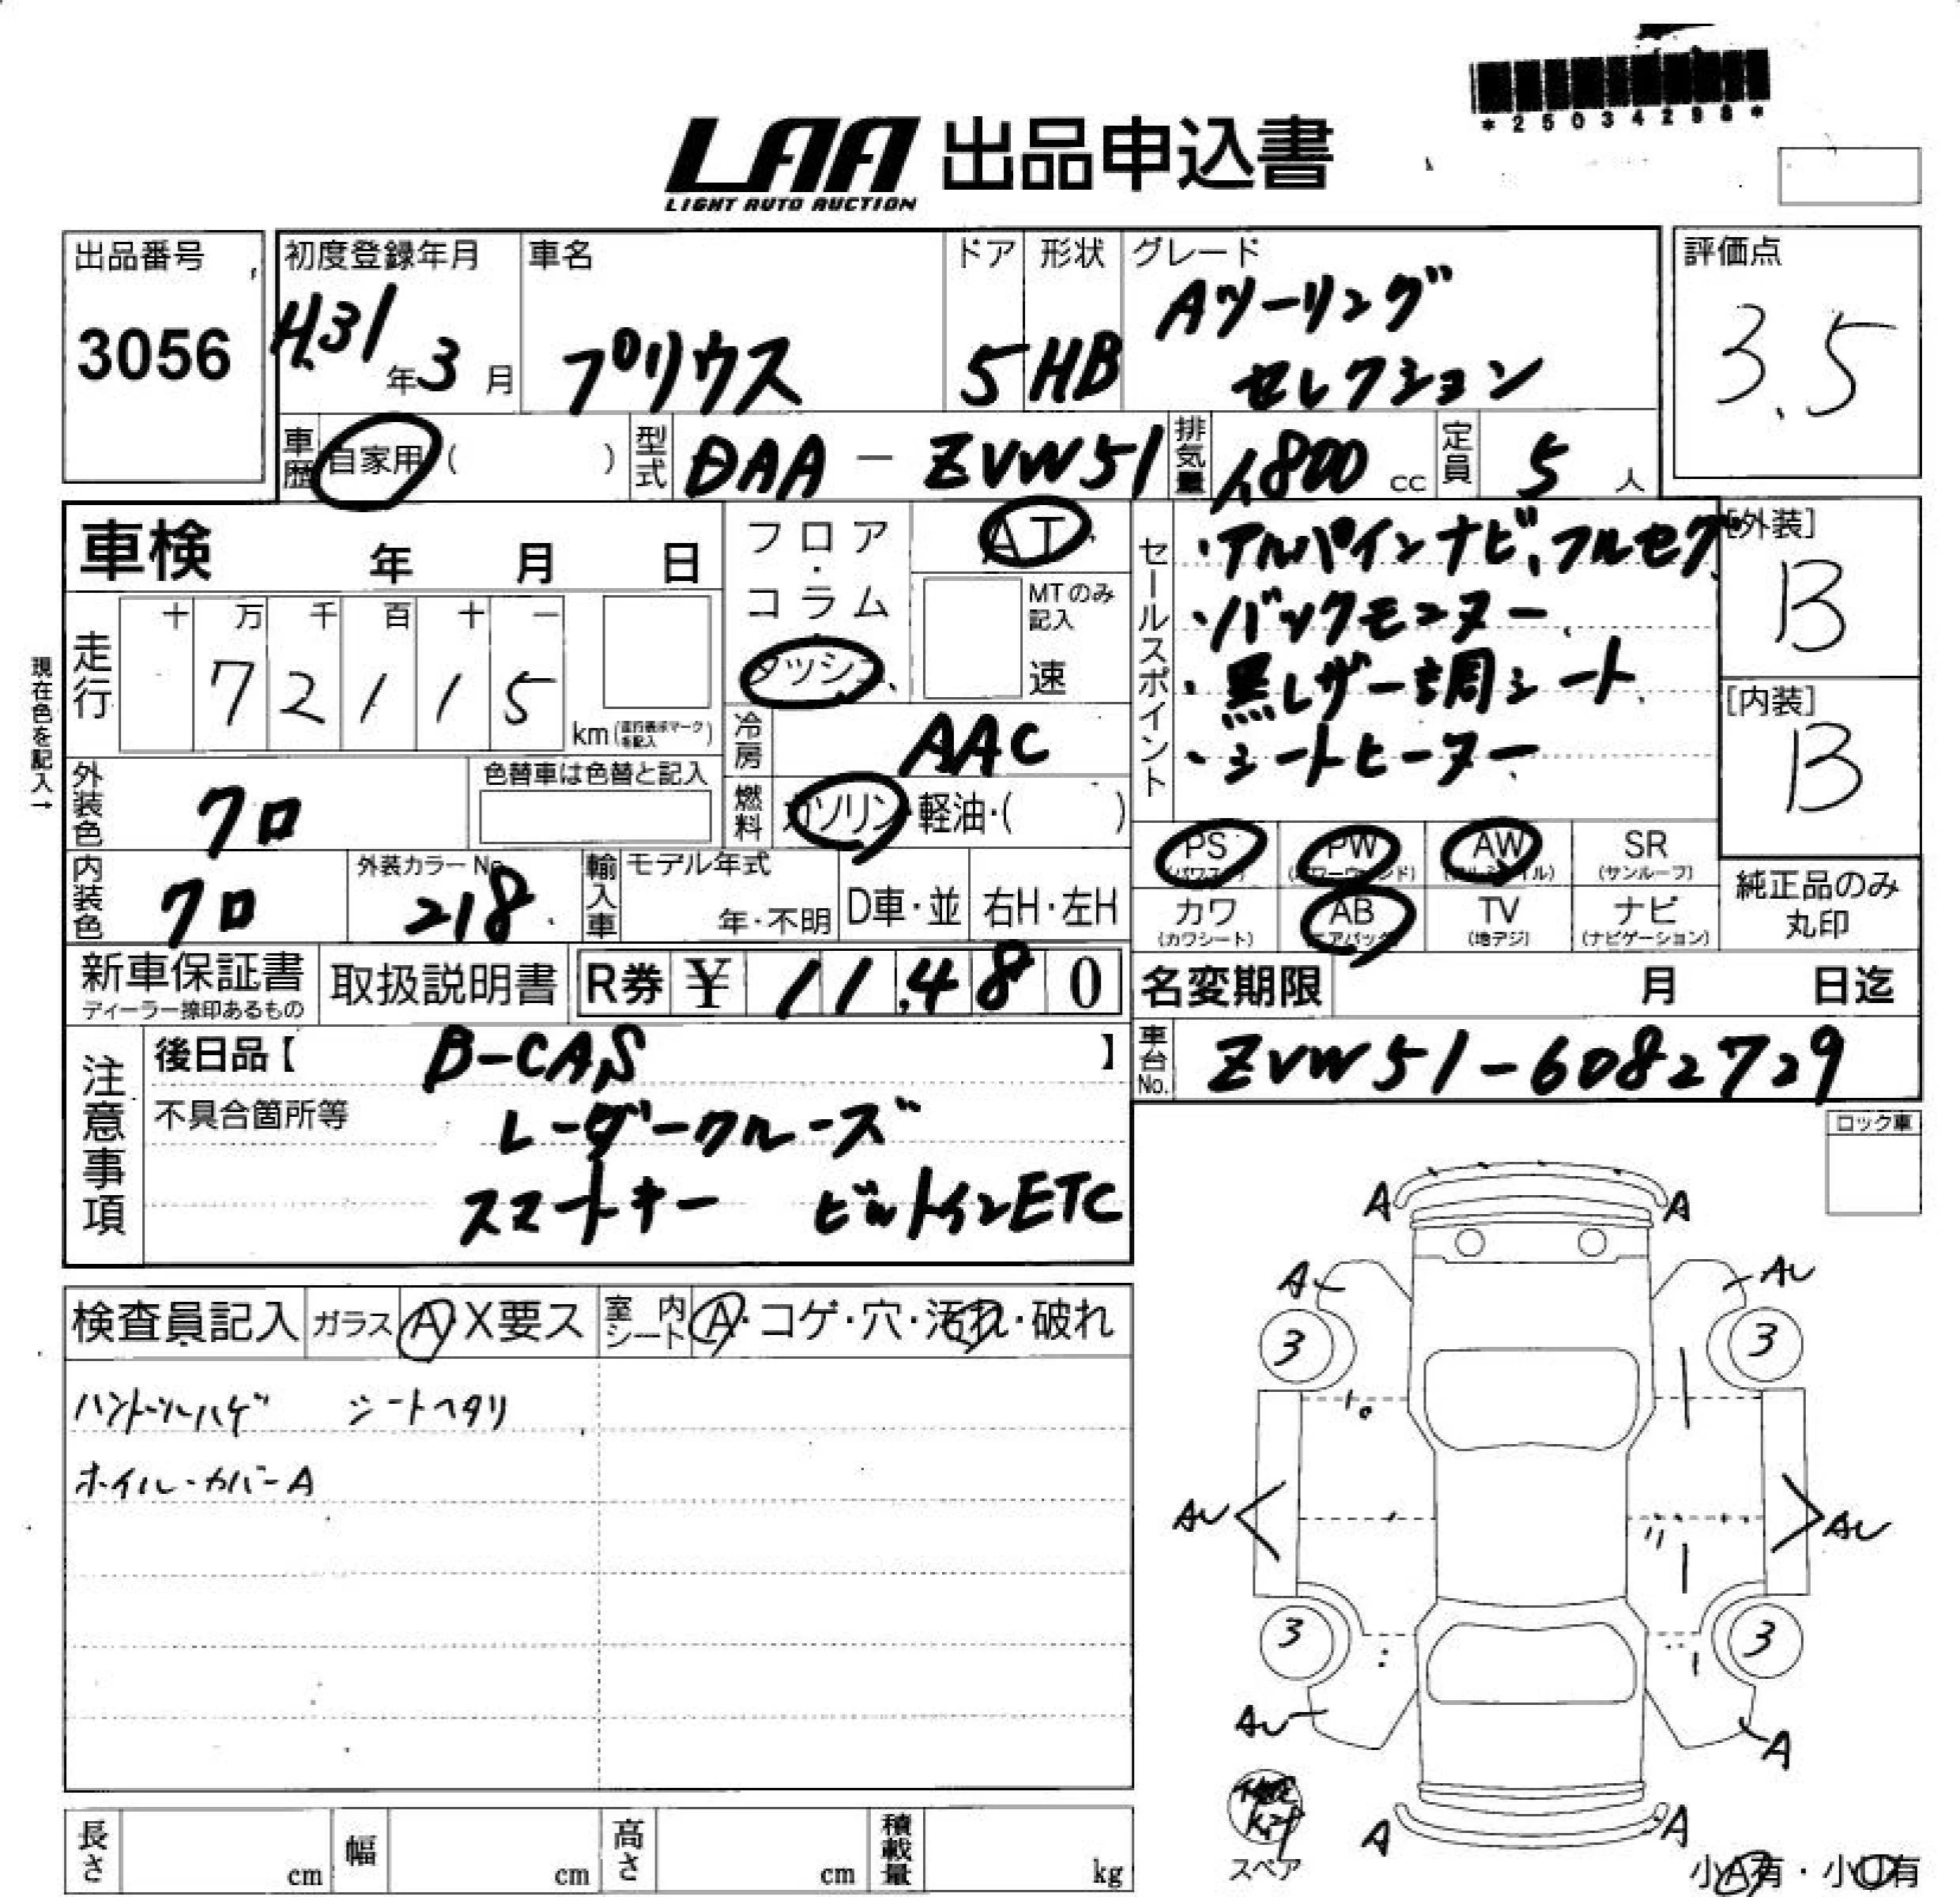 *25034298*
LAA 出品申込書
LIGHT AUTO AUCTION
出品番号
3056
初度登録年月
H.31年3月
車名
プリウス
ドア
5
形状
HB
グレード
Aツーリング
セレクション
評価点
3.5
車歴 自家用 ( )
型式 DAA - ZVW51
排気量 1,800 cc
定員 5 人
車検 年 月 日
現在色を記入→
走行
十 万 千 百 十 一
7 2 1 1 5
km (走行表示マークを記入)
フロア・
コラム・
ダッシュ
AT
MTのみ
記入
速
冷房 AAC
燃料 ガソリン・軽油・( )
セールスポイント
・アルパインナビ、フルセグ
・バックモニター
・黒レザー調シート
・シートヒーター
[外装]
B
[内装]
B
外装色 クロ
色替車は色替と記入
内装色 クロ
外装カラーNo.
218
輸入車
モデル年式
年・不明
D車・並
右H・左H
PS
(パワステ)
PW
(パワーウィンド)
AW
(アルミホイル)
SR
(サンルーフ)
カワ
(カワシート)
AB
(エアバック)
TV
(地デジ)
ナビ
(ナビゲーション)
純正品のみ
丸印
新車保証書
ディーラー捺印あるもの
取扱説明書
R券 ¥ 11,480
名変期限 月 日迄
車台No. ZVW51-6082729
注意事項
後日品【 B-CAS 】
不具合箇所等
レーダークルーズ
スマートキー ビルトインETC
ロック車
検査員記入
ガラス A・X要ス
室内シート A・コゲ・穴・汚れ・破れ
ハンドルハゲ シートヘタリ
ホイル・カバーA
A
A
A
AU
3
3
AU
AU
3
3
AU
A
A
A
スペア
小A有・小U有
長さ cm
幅 cm
高さ cm
積載量 kg